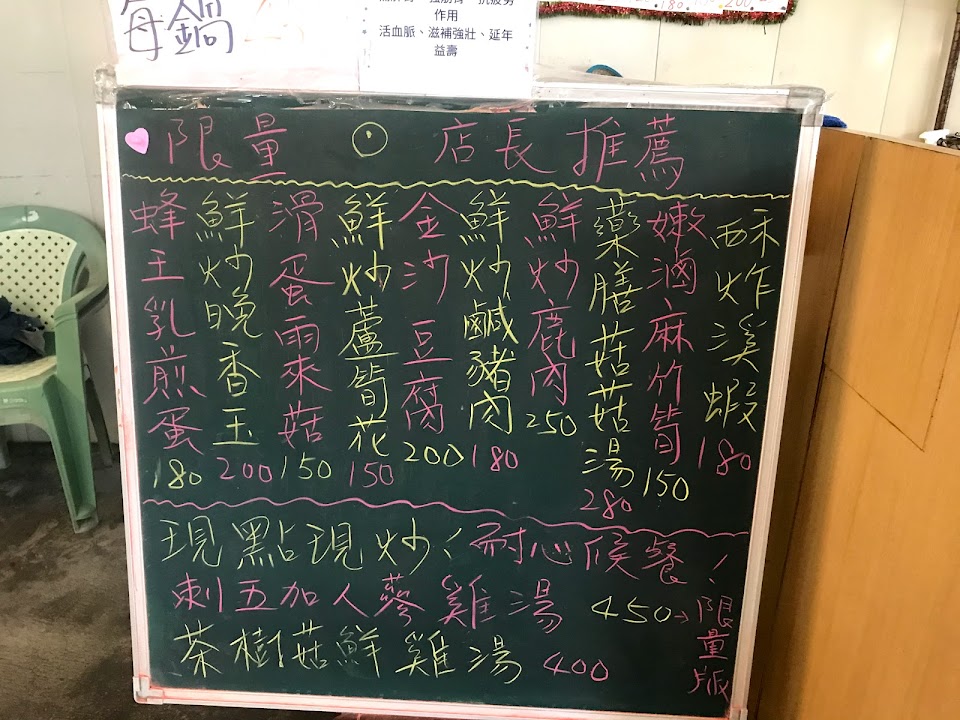 每鍋
作用
活血脈、滋補強壯、延年
益壽
180 200
限量 ⊙ 店長推薦
酥炸溪蝦 180
嫩滷麻竹筍 150
藥膳菇菇菇湯 280
鮮炒鹿肉 250
鮮炒鹹豬肉 180
金沙豆腐 200
鮮炒蘆筍花 150
滑蛋雨來菇 150
鮮炒晚香玉 200
蜂王乳煎蛋 180
現點現炒!耐心候餐!
刺五加人蔘雞湯 450→限量版
茶樹菇鮮雞湯 400